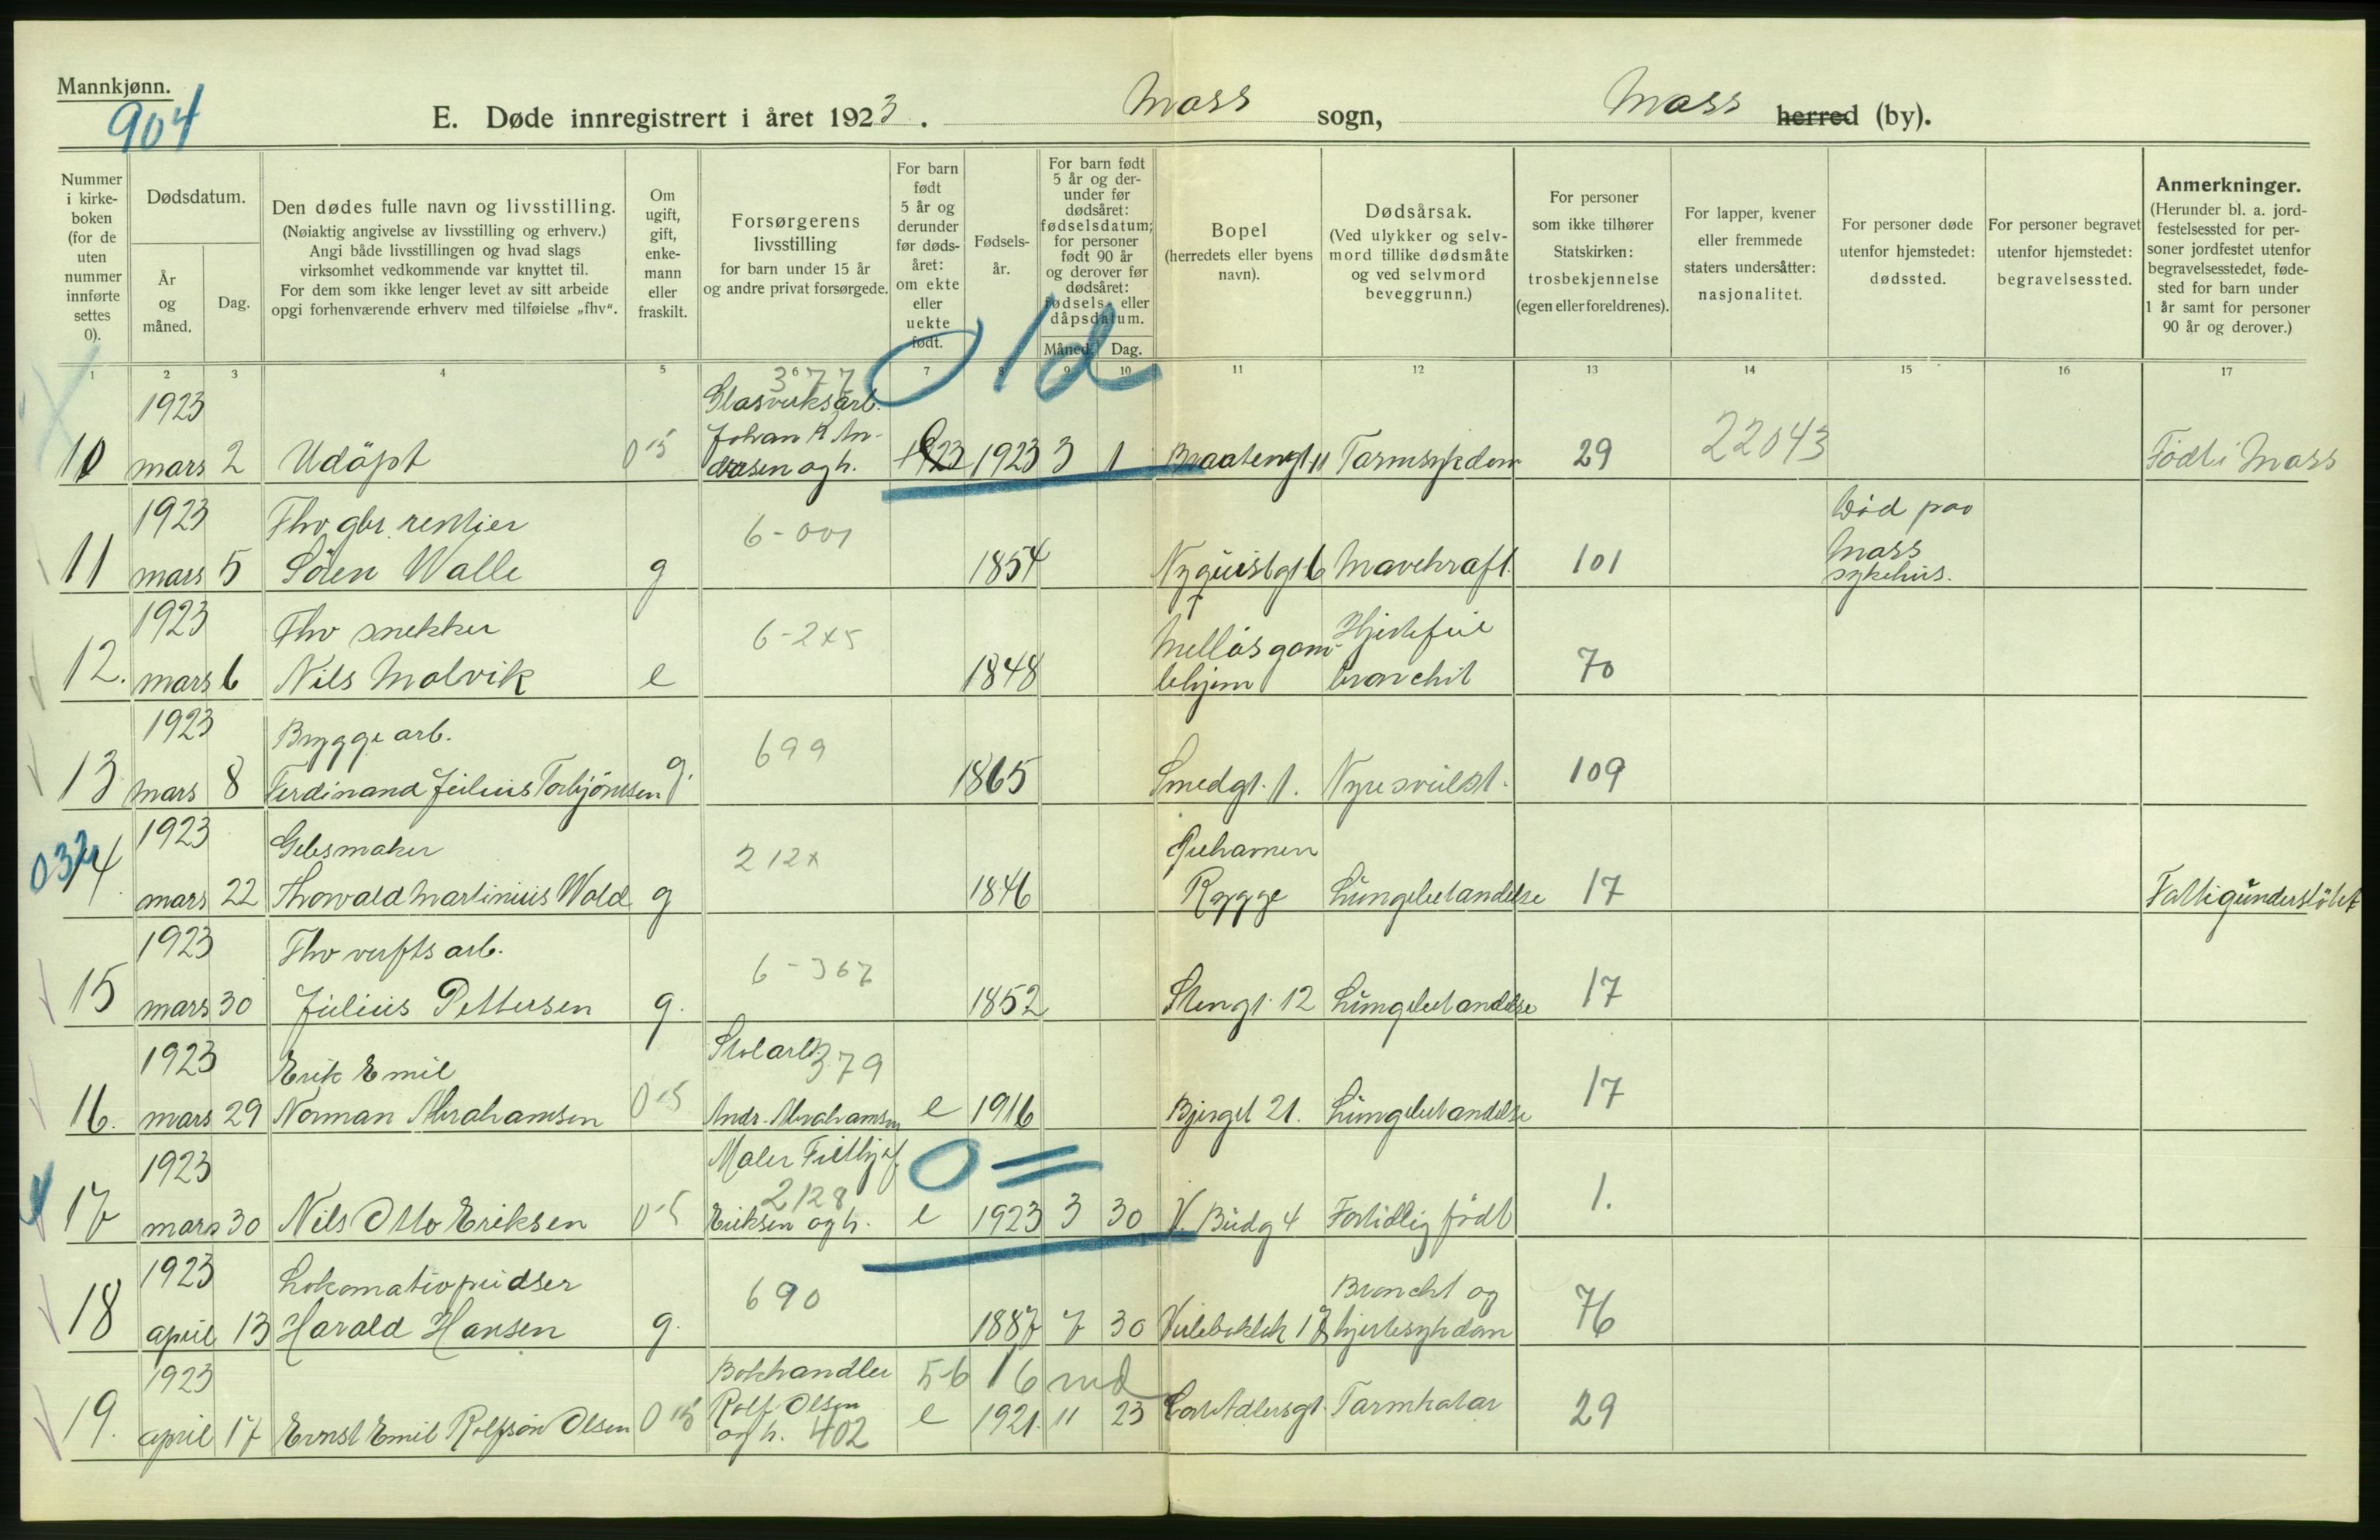 Mannkjønn.
904
E. Døde innregistrert i året 1923. Moss sogn, Moss herred (by).
Nummer i kirkeboken (for de uten nummer innførte settes 0).
Dødsdatum.
År og måned.
Dag.
Den dødes fulle navn og livsstilling.
(Nøiaktig angivelse av livsstilling og erhverv.)
Angi både livsstillingen og hvad slags
virksomhet vedkommende var knyttet til.
For dem som ikke lenger levet av sitt arbeide
opgi forhenværende erhverv med tilføielse „fhv“.
Om ugift, gift, enkemann eller fraskilt.
Forsørgerens
livsstilling
for barn under 15 år
og andre privat forsørgede.
For barn født 5 år og derunder før dødsåret: om ekte eller uekte født.
Fødselsår.
For barn født 5 år og derunder før dødsåret: fødselsdatum; for personer født 90 år og derover før dødsåret: fødsels- eller dåpsdatum.
Måned. Dag.
Bopel
(herredets eller byens
navn).
Dødsårsak.
(Ved ulykker og selvmord tillike dødsmåte
og ved selvmord
beveggrunn.)
For personer
som ikke tilhører
Statskirken:
trosbekjennelse
(egen eller foreldrenes).
For lapper, kvener
eller fremmede
staters undersåtter:
nasjonalitet.
For personer døde
utenfor hjemstedet:
dødssted.
For personer begravet
utenfor hjemstedet:
begravelsessted.
Anmerkninger.
(Herunder bl. a. jordfestelsessted for personer jordfestet utenfor
begravelsesstedet, fødested for barn under
1 år samt for personer
90 år og derover.)
1 2 3 4 5 6 7 8 9 10 11 12 13 14 15 16 17
0 1d
3077
1923 Glasverksarb.
Johan R An-
10 mars 2 Udöpt 0-15 dresen og h. 1923 3 1 Braatengt 11 Tarmsykdom 29 22043 Født i Moss
1923 Fhv gbr. rentier 6-001 Död paa
11 mars 5 Sören Walle g 1854 Nyquistgt 6 Mavekræft. 101 Moss
sykehus.
1923 Fhv snekker 6-2x5 Melløs gam- Hjertefeil
12. mars 6 Nils Molvik e 1848 lehjem bronchit 70
1923 Brygge arb. 699
13 mars 8 Ferdinand Julius Torbjörnsen g. 1865 Smedgt. 1. Nyresvulst. 109
032
1923 Gibsmaker 212x
14 mars 22 Thorvald Martinius Wold g 1846 Rygge Lungebetændelse 17 Fattigunderstöttet
1923 Fhv verfts arb. 6-367
15 mars 30 Julius Pettersen g. 1852 Stengt. 12 Lungebetændelse 17
1923 Erik Emil 379
16. mars 29 Norman Abrahamsen 0-15 Andr. Abrahamsen e 1916 Bjerget 21. Lungebetændelse 17
1923 Maler Frithjof 0 =
2128
17 mars 30 Nils Otto Eriksen 0-5 Eriksen og h. e 1923 3 30 V. Budg 4 Fortidlig födt 1.
1923 Lokomotivpudser 690 Bronchit og
18 april 13 Harald Hansen g. 1887 7 30 hjertesykdom 76
1923 Bokhandler 5-6 16 md
Rolf Olsen
19. april 17 Ernst Emil Rolfsön Olsen 0 15 og h. 402 e 1921. 11 23 Carl Adlersgt. Tarmkatar 29